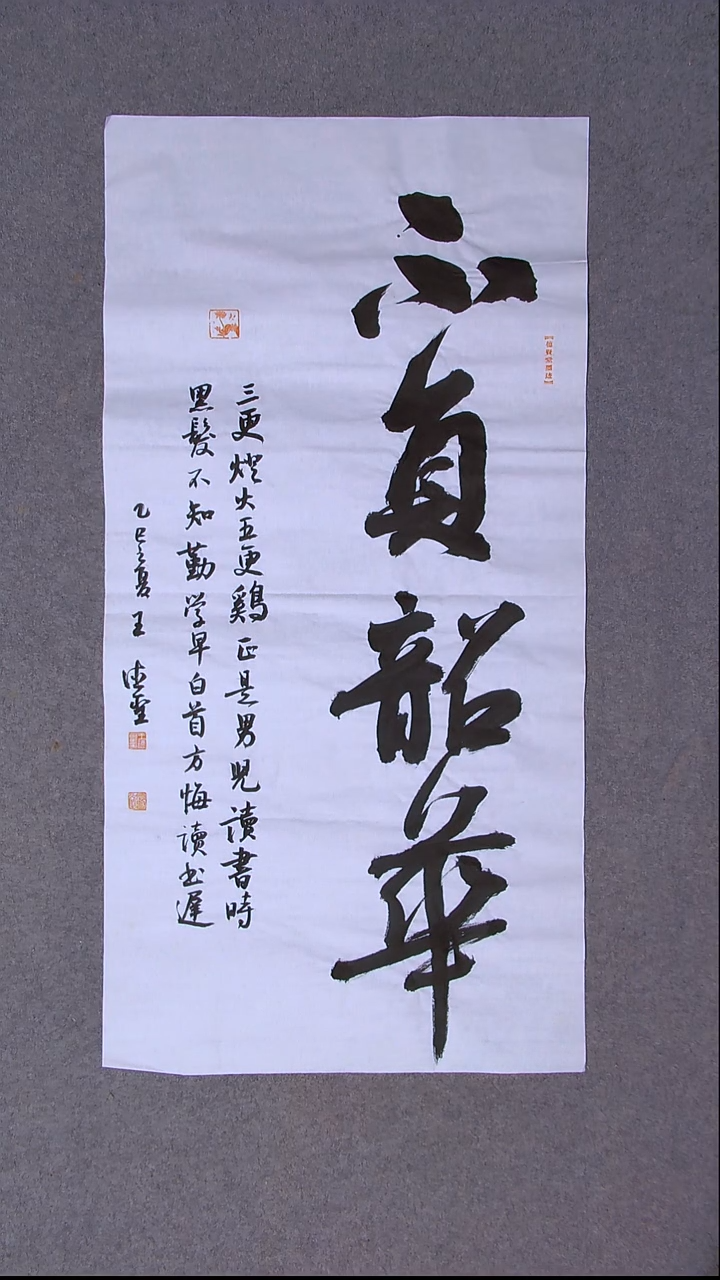 不負韶華
三更燈火五更鷄正是男兒讀書時
黑髮不知勤学早白首方悔讀书遲
乙巳之夏王德聖